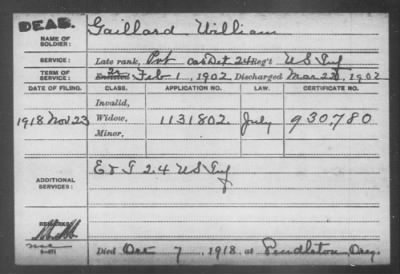 DEAD.
NAME OF SOLDIER: Gaillard William
SERVICE: Late rank, Pvt Cas Det 24 Reg't U S Inf
TERM OF SERVICE: Enlisted Feb 1, 1902 Discharged Mar 22, 1902
DATE OF FILING. CLASS. APPLICATION NO. LAW. CERTIFICATE NO.
Invalid,
1918 Nov 23 Widow, 1131802. July 930,780
Minor,
ADDITIONAL SERVICES: E & F 24 US Inf
REMARKS:
Died Oct 7, 1918, at Pendleton, Oreg.